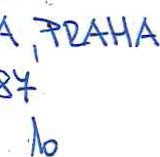 A, PRAHA
87
10